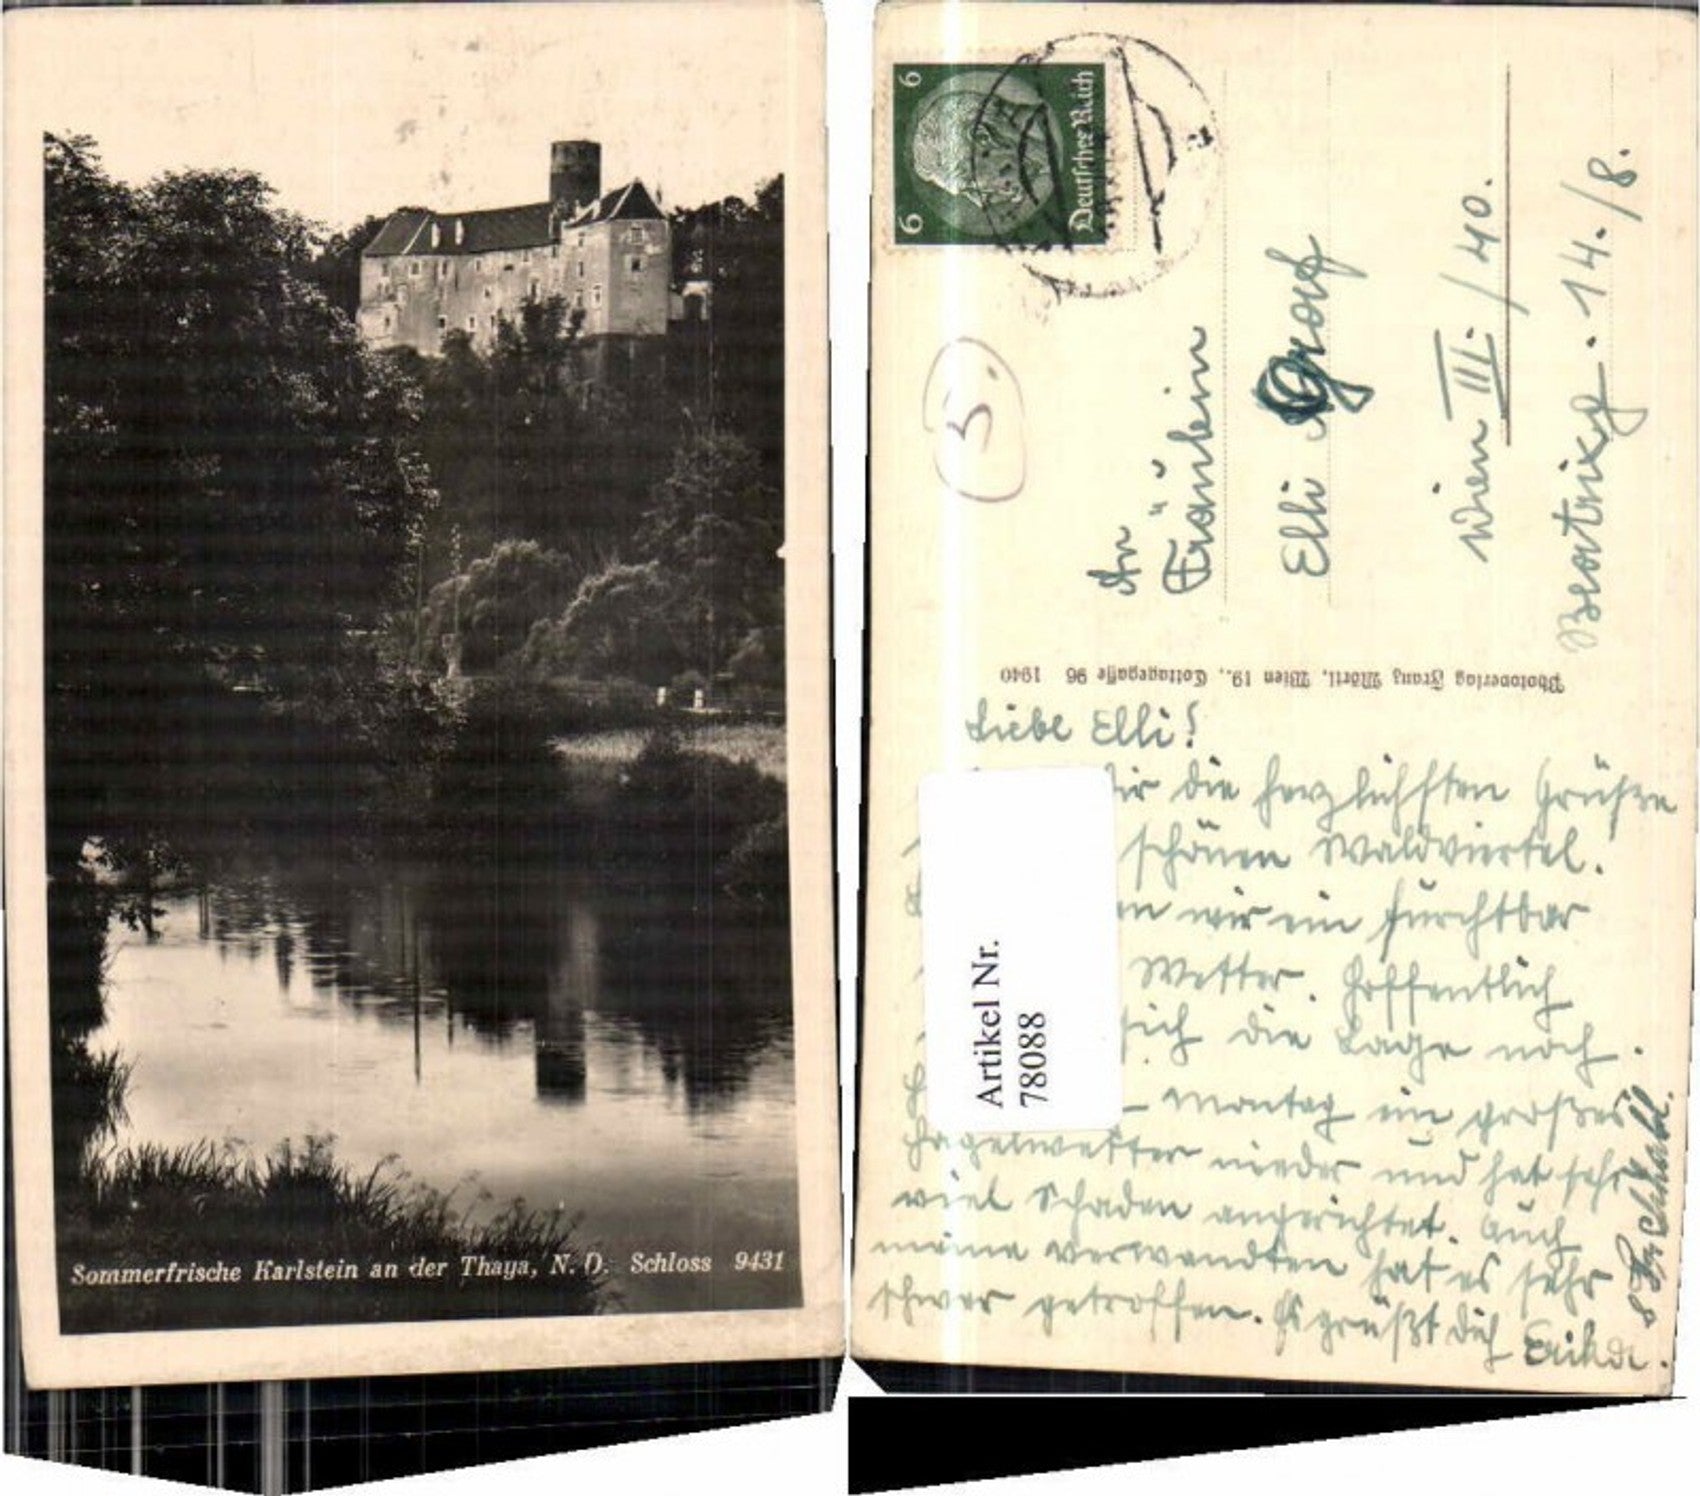 Sommerfrische Karlstein an der Thaya, N. D. Schloss 9431
6 Deutsches Reich 6
5.
An
Fräulein
Elli Graf
Wien III. / 40.
Beatrixg. 14. / 8.
Photoverlag Franz Mörtl, Wien 19., Cottagegasse 96 1940
Liebe Elli!
die herzlichsten Grüße
schönen Waldviertel.
wir ein furchtbar
Wetter. Hoffentlich
sich die Lage noch.
Montag ein großes
Hagelwetter nieder und hat sehr
viel Schaden angerichtet. Auch
meine Verwandten hat es sehr
schwer getroffen. Es grüßt Dich
Artikel Nr.
78088